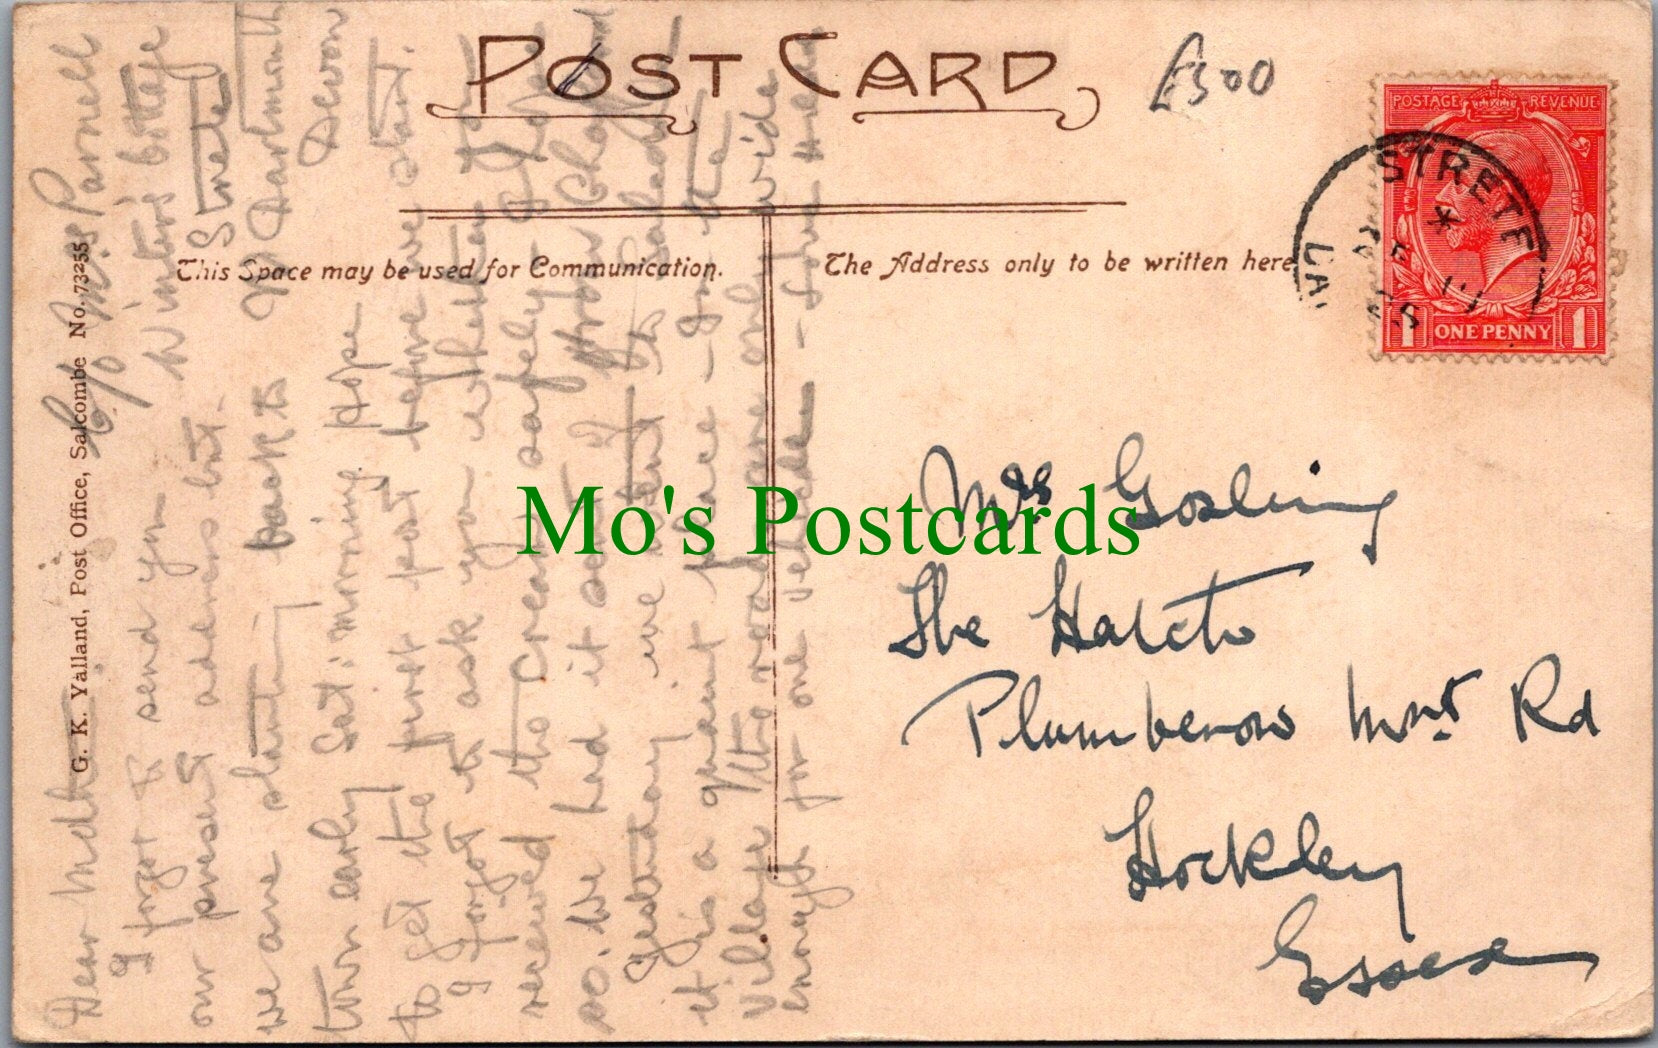 POST CARD
£300
POSTAGE REVENUE
ONE PENNY
1 1
STRETE
This Space may be used for Communication.
The Address only to be written here
G. K. Yalland, Post Office, Salcombe No. 73255
Mo's Postcards
Mrs Gosling
The Hatch
Plumberow Mnt Rd
Hockley
Essex
c/o Mrs Parnell
Winters Cottage
Strete
Nr Dartmouth
Devon
Dear Mother.
I forgot to send you
our present address but
we are starting back to
town early Sat: morning Hope
to get the first post before we start.
I forgot to ask you whether you
received the cream safely. Hope
so. We had it sent from
Yesterday we went to Salcombe
it is a quaint place
village the roads are only wide
enough for one vehicle